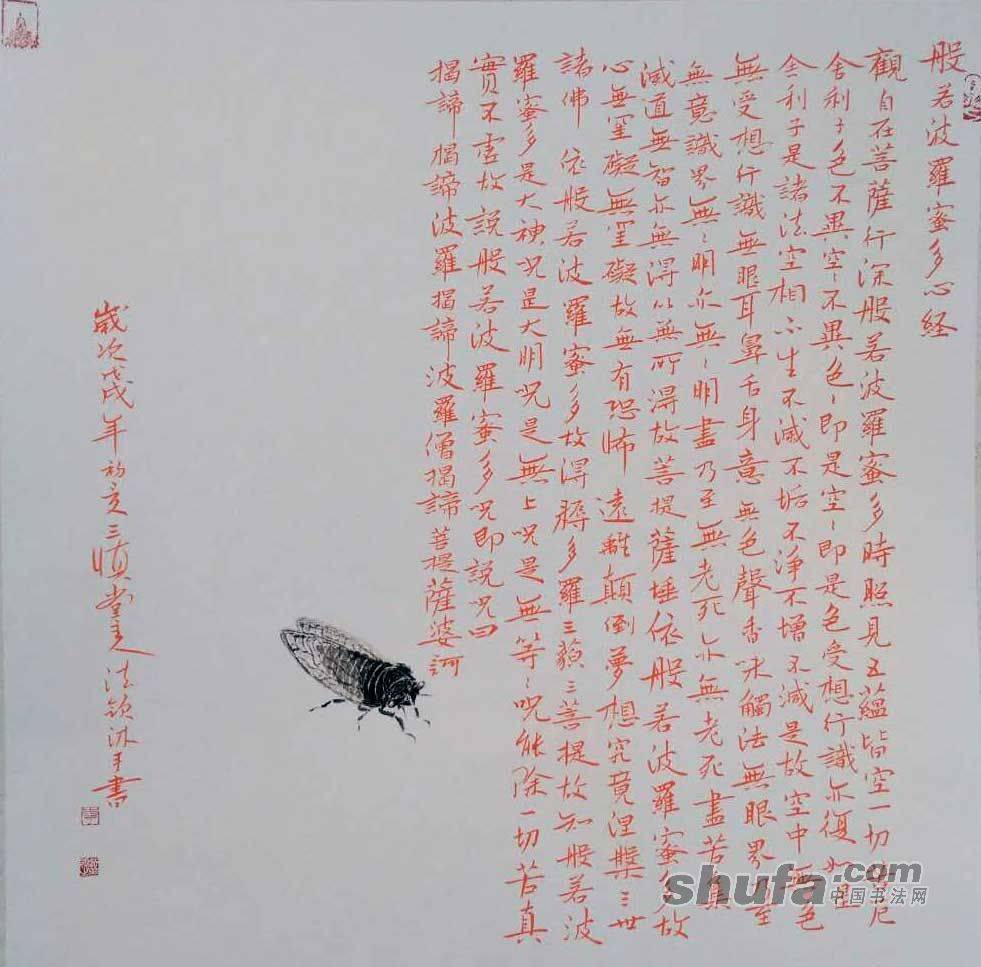 般若波羅蜜多心経
觀自在菩薩行深般若波羅蜜多時照見五蘊皆空一切苦厄
舍利子色不異空〻不異色〻即是空〻即是色受想行識亦復如是
舍利子是諸法空相不生不滅不垢不淨不增不減是故空中無色
無受想行識無眼耳鼻舌身意無色聲香味觸法無眼界乃至
無意識界無〻明亦無〻明盡乃至無老死亦無老死盡苦集
滅道無智亦無得以無所得故菩提薩埵依般若波羅蜜多故
心無罣礙無罣礙故無有恐怖遠離顛倒夢想究竟涅槃三世
諸佛依般若波羅蜜多故得耨多羅三藐三菩提故知般若波
羅蜜多是大神呪是大明呪是無上呪是無等〻呪能除一切苦真
實不虛故說般若波羅蜜多呪即說呪曰
揭諦揭諦波羅揭諦波羅僧揭諦菩提薩婆訶
歲次戊戌年初夏三慎堂主人法沐手書
shufa.com
中国书法网